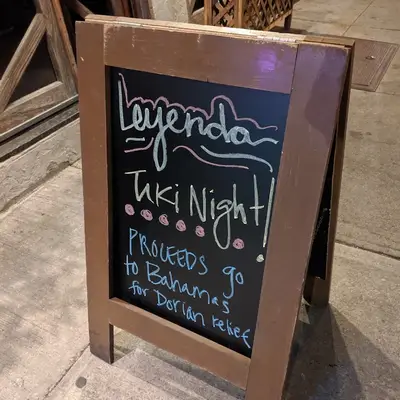 Leyenda
Tiki Night!
PROCEEDS go
to Bahamas
for Dorian relief